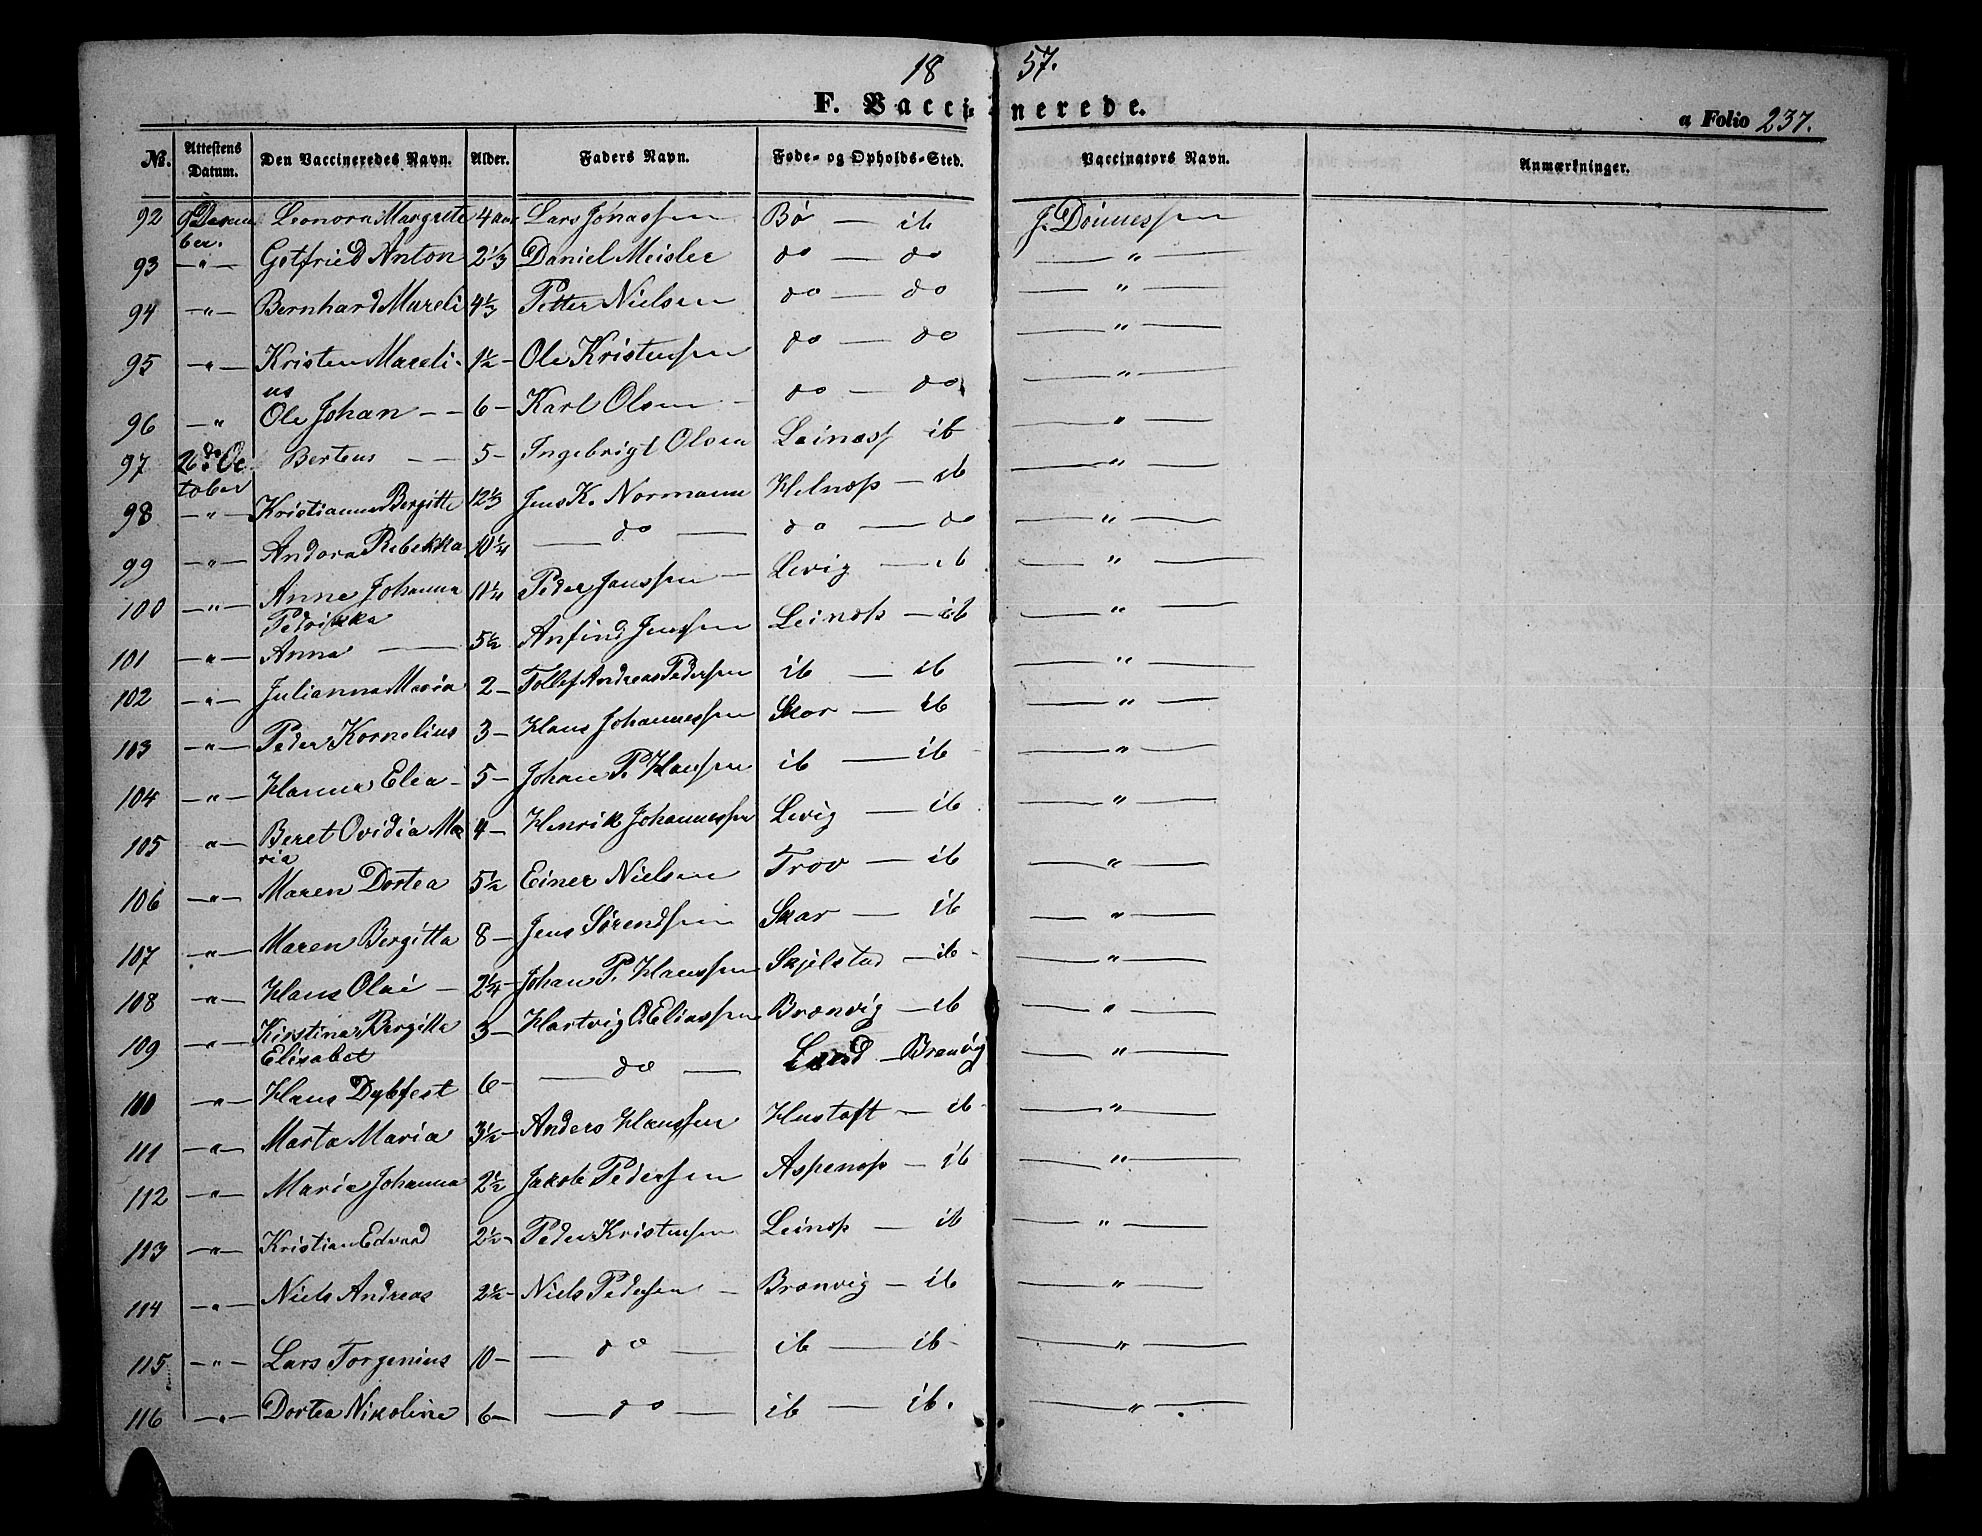 18 57.
F. Vaccinerede.
a Folio 237.
No. Attestens Datum. Den Vaccineredes Navn. Alder. Faders Navn. Føde- og Opholds-Sted. Vaccinators Navn. Anmærkninger.
92 9 Decem Leonora Margrete 4 aar Lars Jonassen Bø — ib J. Dönnessen
ber.
93 —"— Gotfried Anton 2 1/3 Daniel Meisler do — do —"—
94 —"— Bernhard Mareli 4 1/3 Petter Nielsen do — do —"—
95 —"— Kristen Mareli- 1 1/2 — Ole Kristensen do — do —"—
us
96 —" Ole Johan — — 6 — Karl Olsen — do — do —"—
97 26de Oc Berteus — 5 — Ingebrigt Olsen Leinæss ib —"—
tober
98 —"— Kristianna Bergitte 12 1/3 Jens K. Normann Helnæss — ib —"—
99 —"— Andora Rebekka 10 1/4 — do — do — do —"—
100 —"— Anne Johanna 11 1/4 Peder Janssen — Levig — ib —"—
Pedrikka
101 —"— Anna — 5 1/2 Anfind Jenssen Leinæss — ib —"—
102 —"— Julianna Maria 2 — Tollef Andreas Pedersen ib — ib —"—
103 —"— Peder Kornelius 3 — Hans Johannessen Skar — ib —"—
104 —"— Hanna Elea — 5 — Johan P. Hanssen ib — ib —"—
105 "— Beret Ovidia Ma 4 — Henrik Johannessen Levig — ib —"—
ria
106 —"— Maren Dortea 5 1/2 Einer Nielsen Trov — ib —"—
107 —"— Maren Bergitta 8 — Jens Sørendsen Skar — ib —"—
108 "— Hans Olai — 2 1/4 — Johan P. Hanssen Skjelstad — ib — —"—
109 —"— Kirstina Bergitta 3 — Hartvig O. Eliassen Brænvig — ib —"—
Elisabet
110 —"— Hans Dybfest 6 — — do — Land — Brænvig —"—
111 —"— Marta Maria 3 1/2 — Anders Hanssen Hustoft — ib — —"—
112 —"— Maria Johanna 2 1/2 Jakob Pedersen Aspenæss — ib —"—
113 —"— Kristian Edvard 2 1/2 — Peder Kristensen Leinæss — ib —"—
114 —"— Niels Andreas 2 1/2 — Niels Pedersen — Brænvig — ib —"—
115 —"— Lars Torgenius 10 — — do — ib — ib — —"—
116 —"— Dortea Nikoline 6 — — do — ib — ib. —"—